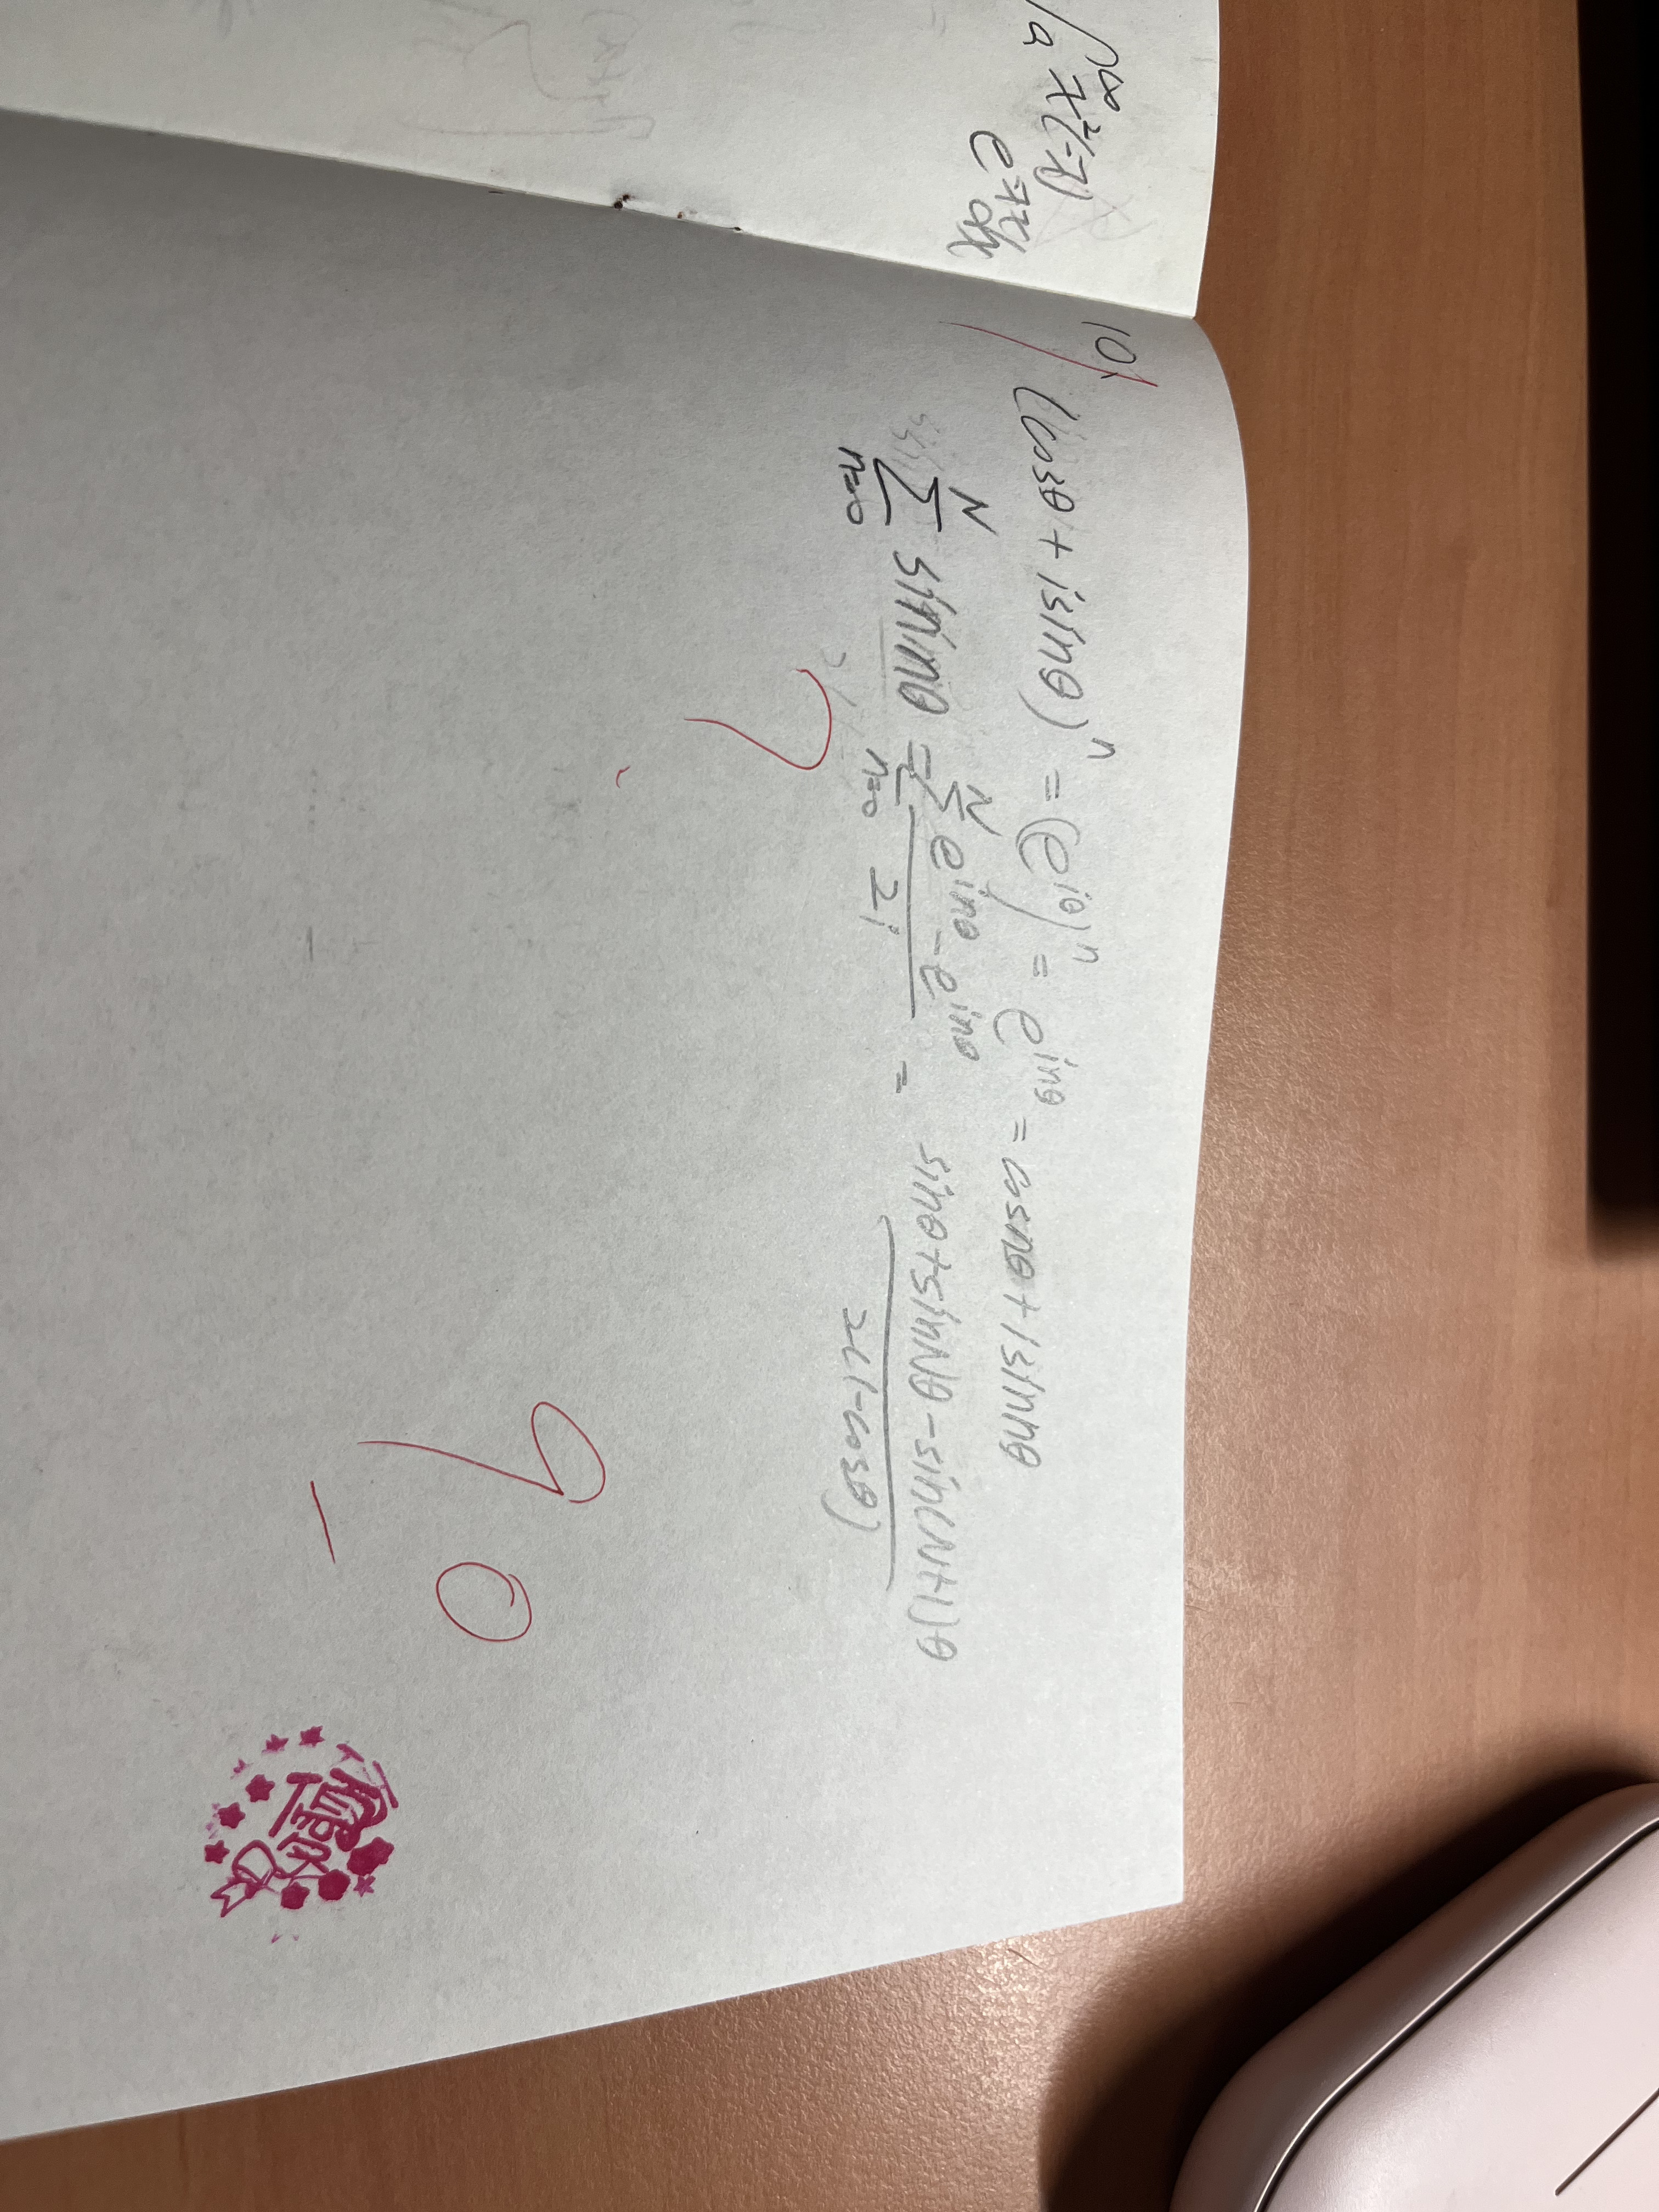 ∫a^∞ x²(-λ) e^-λx dx
10. (cosθ + isinθ)^n = (e^iθ)^n = e^inθ = cosnθ + isinnθ
∑_{n=0}^{N} sin nθ = ∑_{n=0}^{N} (e^inθ - e^inθ)/2i = (sinθ + sinNθ - sin(N+1)θ)/2(1-cosθ)
90